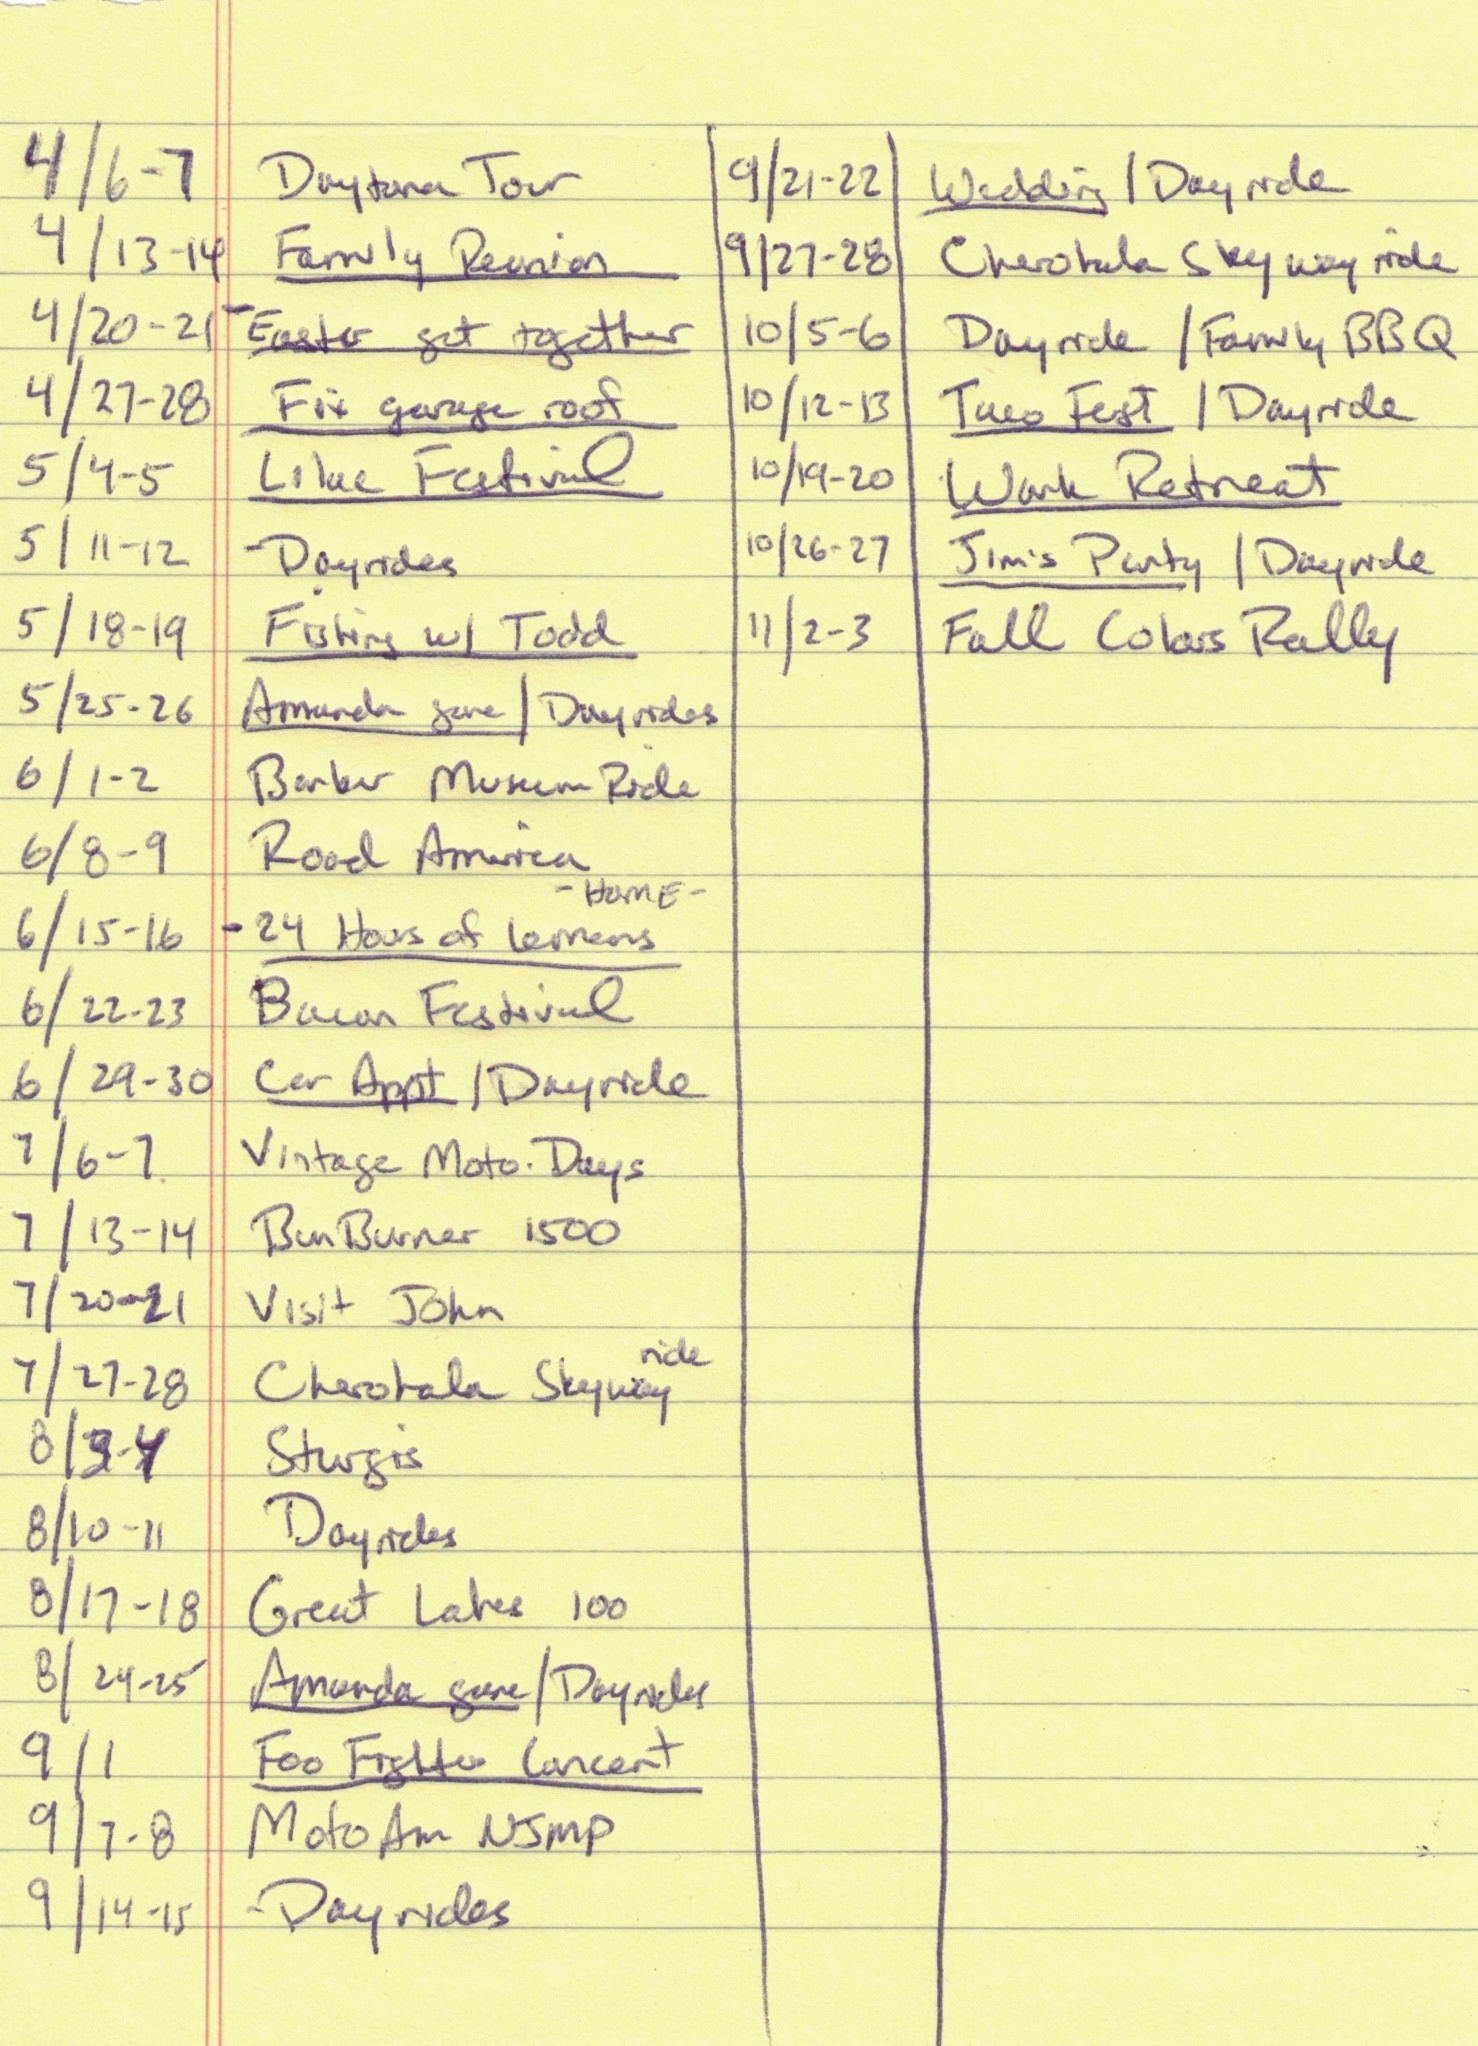 4/6-7 Daytona Tour
4/13-14 Family Reunion
4/20-21 - Easter get together
4/27-28 Fix garage roof
5/4-5 Lilac Festival
5/11-12 - Dayrides
5/18-19 Fishing w/ Todd
5/25-26 Amanda gone / Dayrides
6/1-2 Barber Museum Ride
6/8-9 Road America
- HOME -
6/15-16 - 24 Hours of Lemans
6/22-23 Bacon Festival
6/29-30 Car Appt / Dayride
7/6-7 Vintage Moto. Days
7/13-14 BunBurner 1500
7/20-21 Visit John
7/27-28 Cherohala Skyway ride
8/3-4 Sturgis
8/10-11 Dayrides
8/17-18 Great Lakes 100
8/24-25 Amanda gone / Dayrides
9/1 Foo Fighter Concert
9/7-8 MotoAm NJMP
9/14-15 - Dayrides
9/21-22 Wedding / Dayride
9/27-28 Cherohala Skyway ride
10/5-6 Dayride / Family BBQ
10/12-13 Taco Fest / Dayride
10/19-20 Work Retreat
10/26-27 Jim's Party / Dayride
11/2-3 Fall Colors Rally